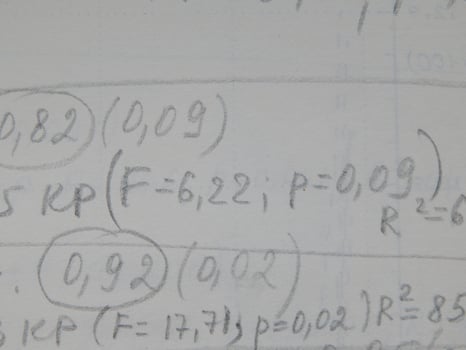 0,82 (0,09)
5 KP (F=6,22; p=0,09)
R²=6
0,92 (0,02)
KP (F=17,71; p=0,02) R²=85